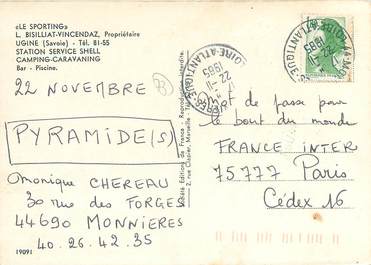 «LE SPORTING»
L. BISILLIAT-VINCENDAZ, Propriétaire
UGINE (Savoie) - Tél. 81-55
STATION SERVICE SHELL
CAMPING-CARAVANING
Bar - Piscine.
22 NOVEMBRE
PYRAMIDE(S)
Monique CHEREAU
30 rue des FORGES
44690 MONNIERES
40.26.42.35
19091
Société Editions de France - Reproduction interdite.
2, rue Chapier, Marseille
LOIRE-ATLANTIQUE
22-11
1985
Mot de passe pour
le bout du monde
FRANCE INTER
75777 Paris
Cédex 16